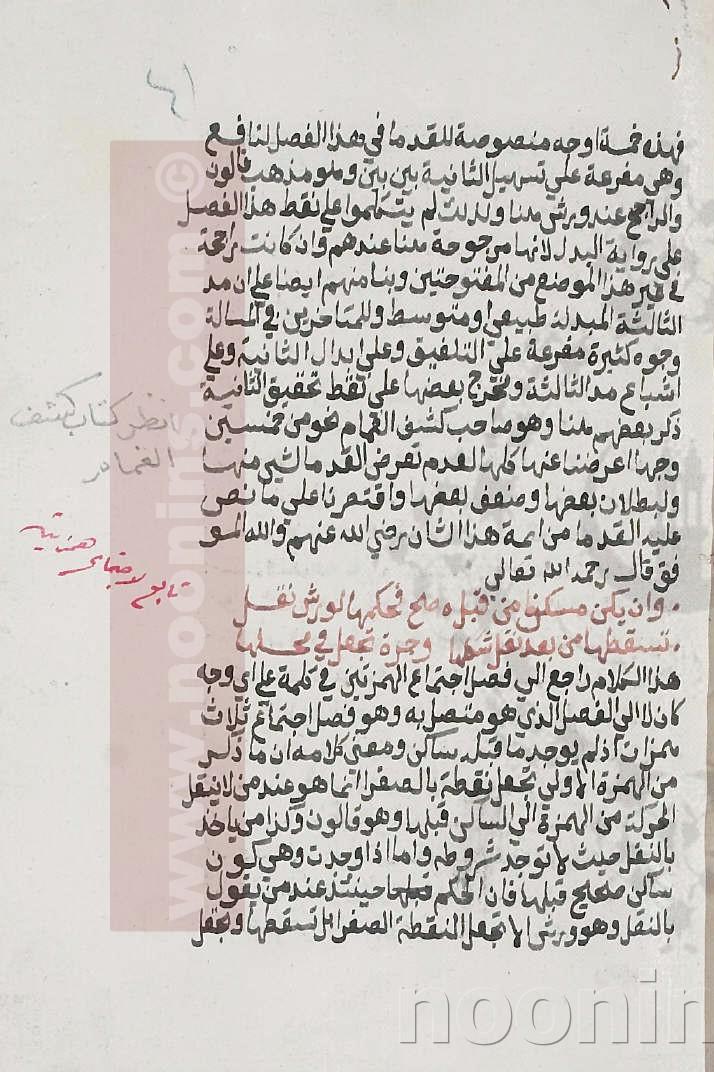 ٤١
فهذه خمسة اوجه منصوصة للقدما في هذا الفصل لنافع
وهي مفرعة علي تسهيل الثانية بين بين وهو مذهب قالون
والراجح عند ورش هنا ولذلك لم يتكلموا علي نقط هذا الفصل
علي رواية البدل لانها مرجوحة هنا عندهم وان كانت راجحة
في غير هذا الموضع من المفتوحتين وبنا منهم ايضا علي ان مد
الثالثة المبدلة طبيعي او متوسط وللمتاخرين في المسالة
وجوه كثيرة مفرعة علي التلفيق وعلي ابدال الثانية وعلي
اشباع مد الثالثة وتخرج بعضها علي نقط تحقيق الثانية
ذكر بعضهم هنا وهو صاحب كشف الغمام نحو من خمسين
وجها اعرضنا عنها كلها لعدم تعرض القدما لشي منها
ولبطلان بعضها وضعف بعضها واقتصرنا علي ما نص
عليه القدما من ايمة هذا الشان رضي الله عنهم والله المو
فق قال رحمه الله تعالي
وان يكن مسكنا من قبله صح فحكمها لورش نقل
تسقطها من بعد نقل شكلها وجرة تجعل في محلها
هذا الكلام راجع الي فصل اجتماع الهمزتين في كلمة علي اي وجه
كان لا الي الفصل الذي هو متصل به وهو فصل اجتماع ثلاث
همزات اذ لم يوجد ما قبله ساكن ومعني كلامه ان ما ذكر
من الهمزة الاولي تجعل نقطة بالصفرا انما هو عند من لا ينقل
الحركة من الهمزة الي الساكن قبلها وهو قالون وكذا من ياخذ
بالنقل حيث لا توجد شروطه واما اذا وجدت وهي كون
ساكن صحيح قبلها فان الحكم حينئذ عند من يقول
بالنقل وهو ورش الا تجعل النقطة الصفرا بل تسقطها وتجعل
انظر كتاب كشف
الغمام
تابع لاجتماع همزتين
www.noonins.com ©
noonin